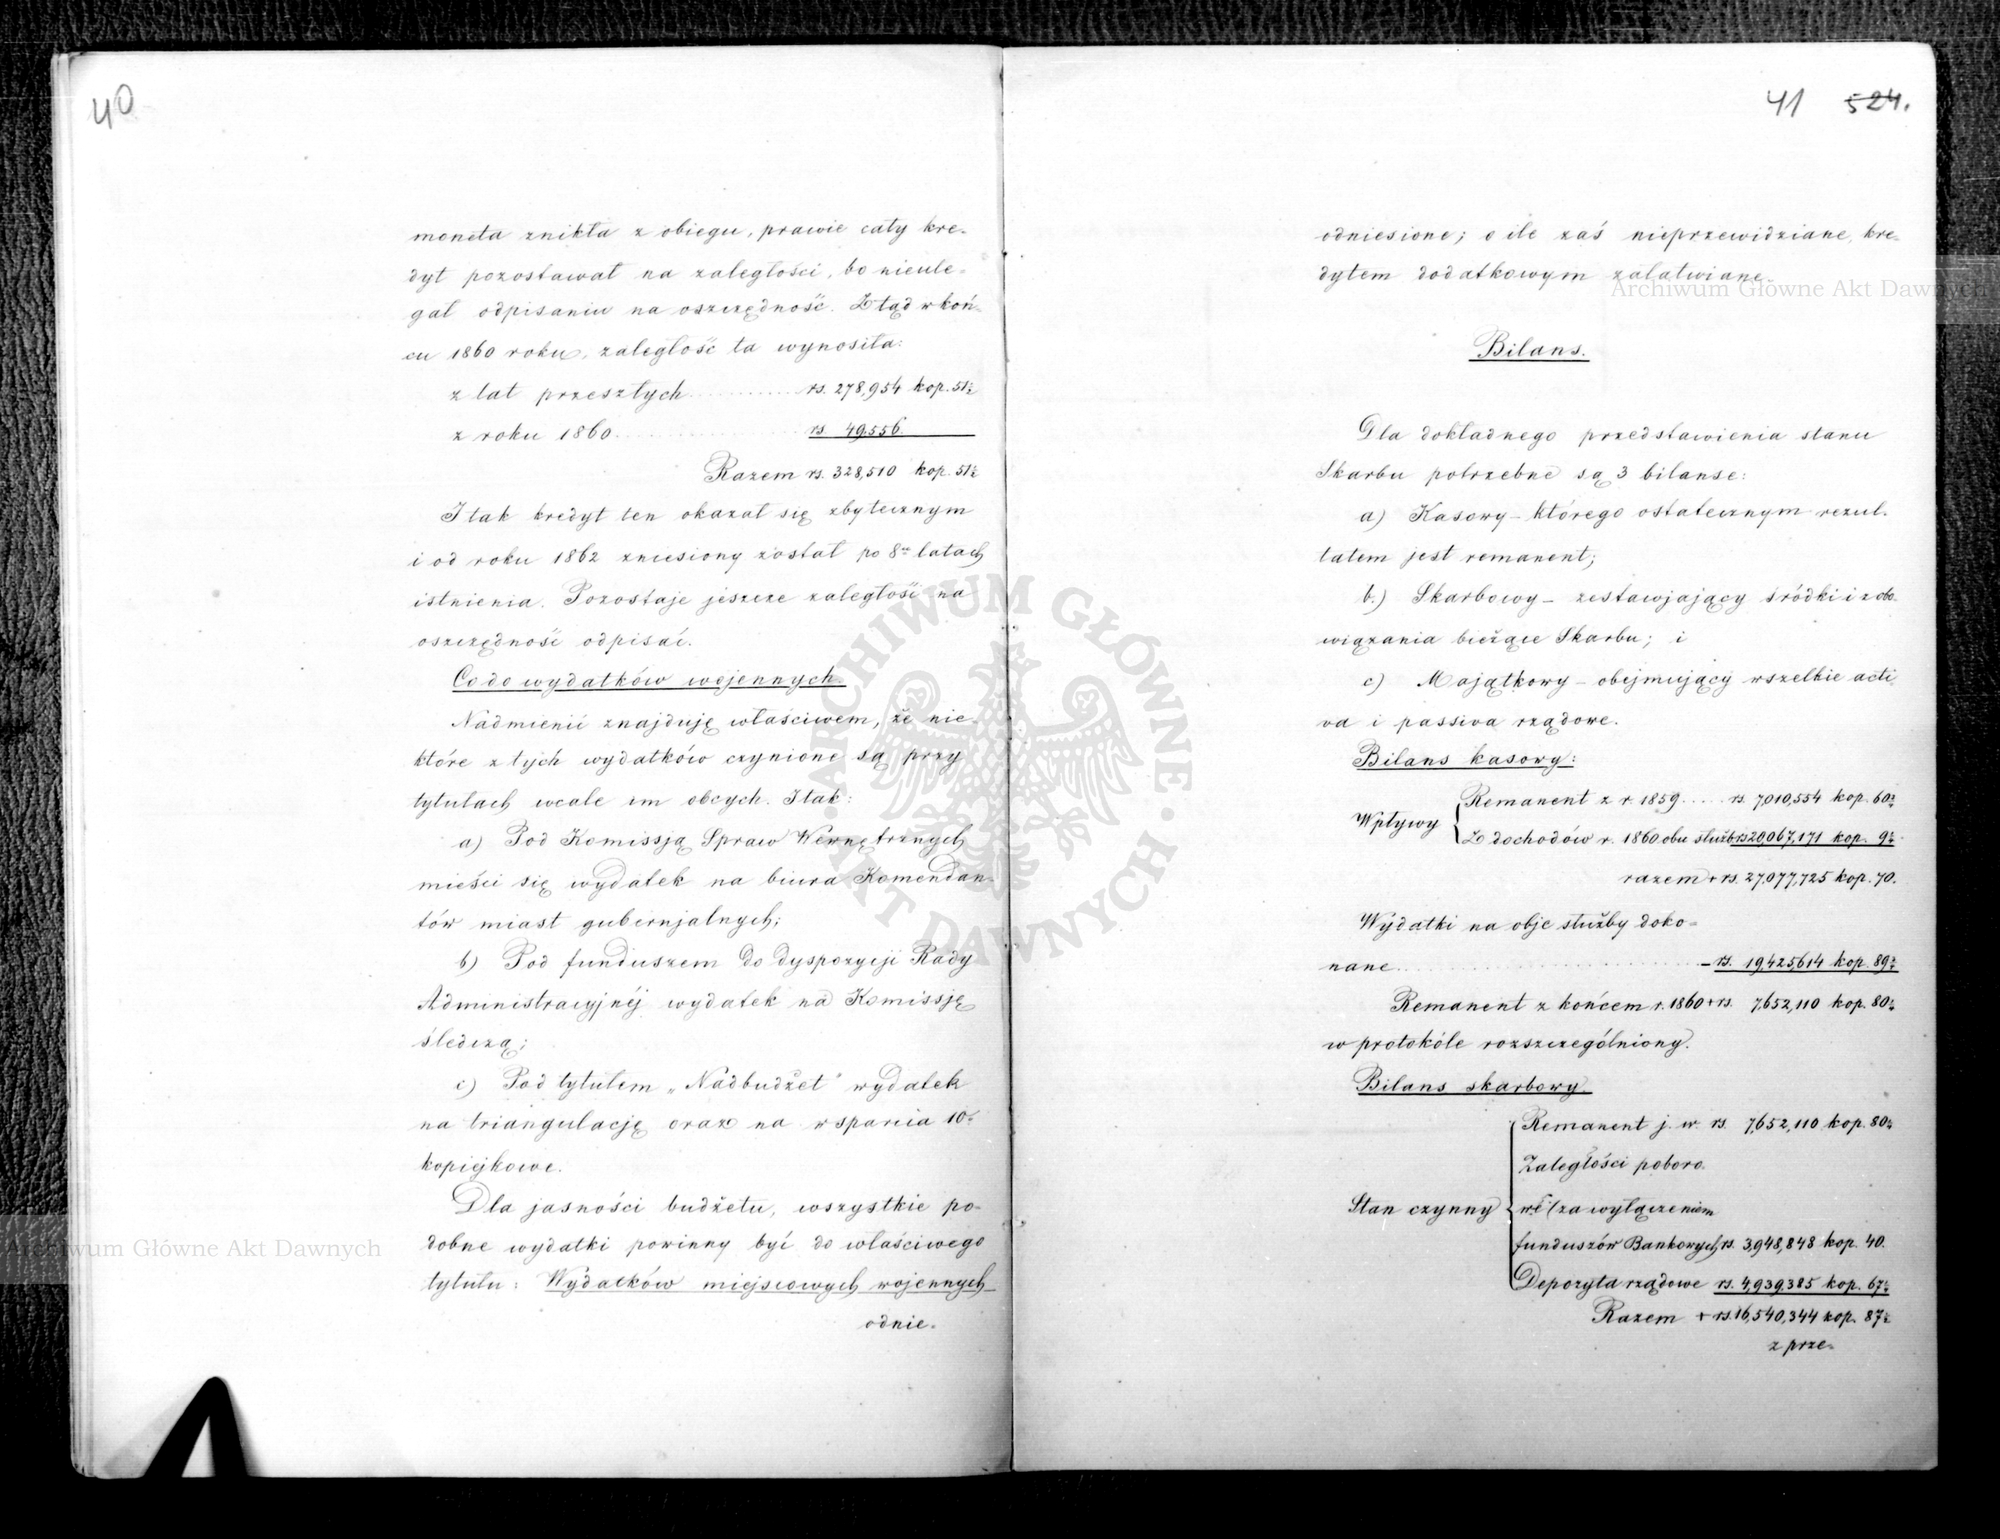 40
moneta znikła z obiegu, prawie cały kre-
dyt pozostawał na zaległości, bo nieule-
gał odpisaniu na oszczędność. Ztąd w koń-
cu 1860 roku, zaległość ta wynosiła:
z lat przeszłych rs. 278,954 kop. 51½
z roku 1860 rs. 49,556.
Razem rs. 328,510 kop. 51½
I tak kredyt ten okazał się zbytecznym
i od roku 1862 zniesiony został po 8 latach
istnienia. Pozostaje jeszcze zaległości na
oszczędność odpisać.
Co do wydatków wojennych.
Nadmienić znajduję właściwem, że nie-
które z tych wydatków czynione są przy
tytułach wcale im obcych. I tak:
a) Pod Komissją Spraw Wewnętrznych
mieści się wydatek na biura Komendan-
tów miast gubernjalnych;
b) Pod funduszem do dyspozycji Rady
Administracyjnéj wydatek na Komissję
śledczą;
c) Pod tytułem „Nadbudżet" wydatek
na triangulację oraz na wsparcia 10-
kopiejkowe.
Dla jasności budżetu, wszystkie po-
dobne wydatki powinny być do właściwego
tytułu: Wydatków miejscowych wojennych
odnie-
41 524.
odniesione; o ile zaś nieprzewidziane, kre-
dytem dodatkowym załatwiane.
Bilans.
Dla dokładnego przedstawienia stanu
Skarbu potrzebne są 3 bilanse:
a) Kasowy – którego ostatecznym rezul-
tatem jest remanent;
b.) Skarbowy – zestawjający śródki i zobo-
wiązania bieżące Skarbu; i
c) Majątkowy – obejmujący wszelkie acti-
va i passiva rządowe.
Bilans kasowy:
Wpływy Remanent z r. 1859 rs. 7,010,554 kop. 60½
Z dochodów r. 1860 obu służb rs 20,067,171 kop. 9½
razem + rs. 27,077,725 kop. 70.
Wydatki na obje służby doko-
nane – rs. 19,425,614 kop. 89½
Remanent z końcem r. 1860 + rs. 7,652,110 kop. 80½
w protokóle rozszczególniony.
Bilans skarbowy.
Remanent j. w. rs. 7,652,110 kop. 80½
Zaległości poboro-
Stan czynny we (za wyłączeniem
funduszów Bankowych rs. 3,948,848 kop. 40.
Depozyta rządowe rs. 4,939,385 kop. 67½
Razem + rs. 16,540,344 kop. 87½
z prze-
Archiwum Główne Akt Dawnych
Archiwum Główne Akt Dawnych
ARCHIWUM GŁÓWNE AKT DAWNYCH